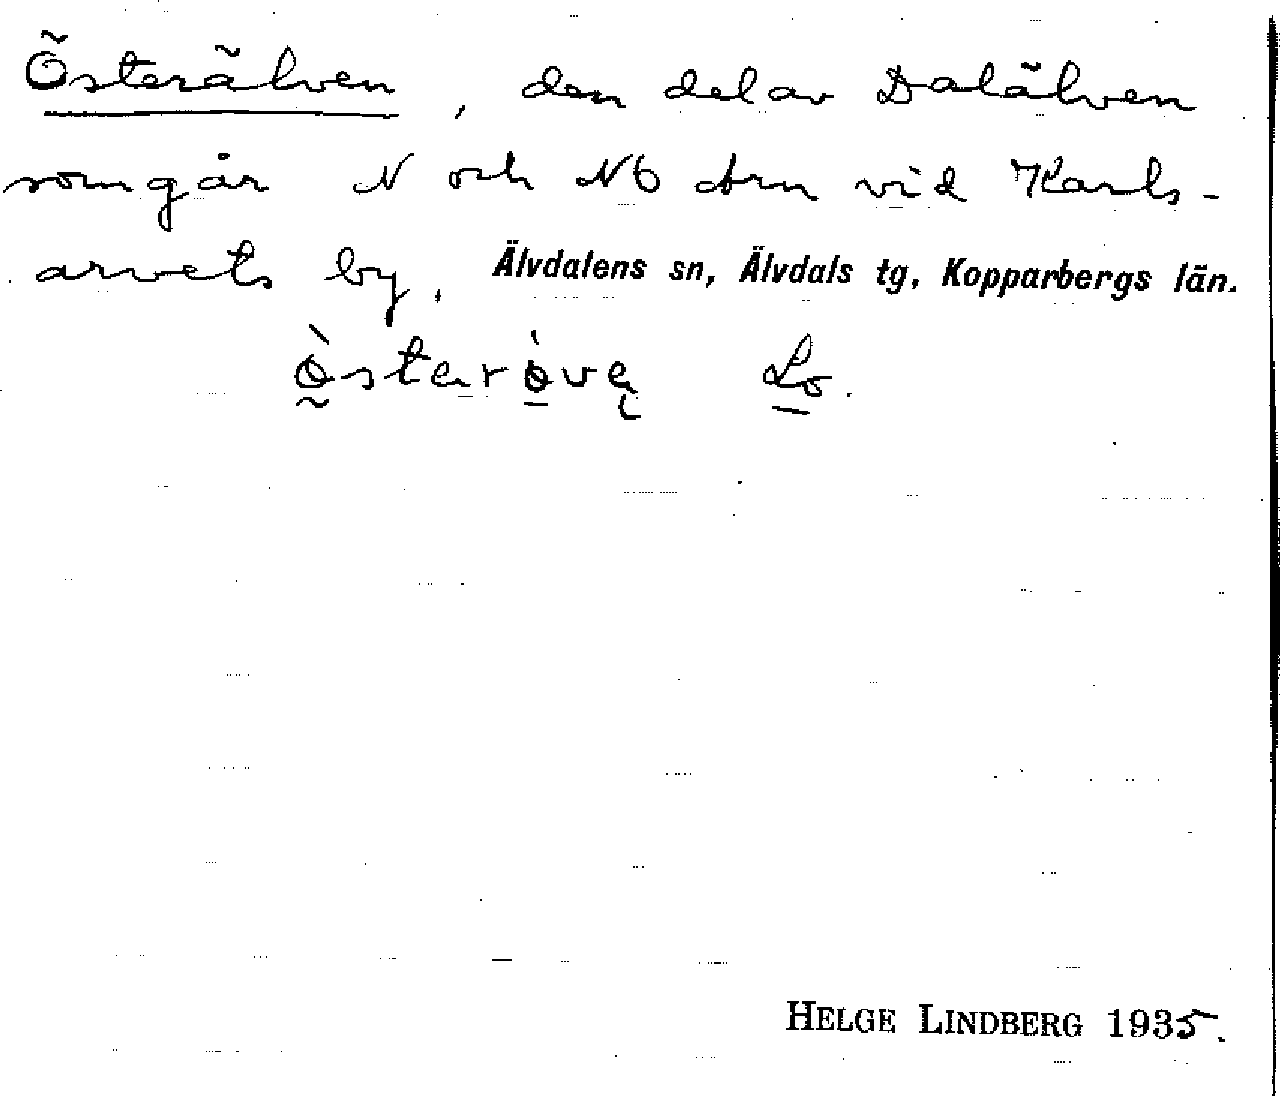 Österälven, den del av Dalälven
som går N och NÖ om vid Karls-
arvets by. Älvdalens sn, Älvdals tg, Kopparbergs län.
Lo.
HELGE LINDBERG 1935.